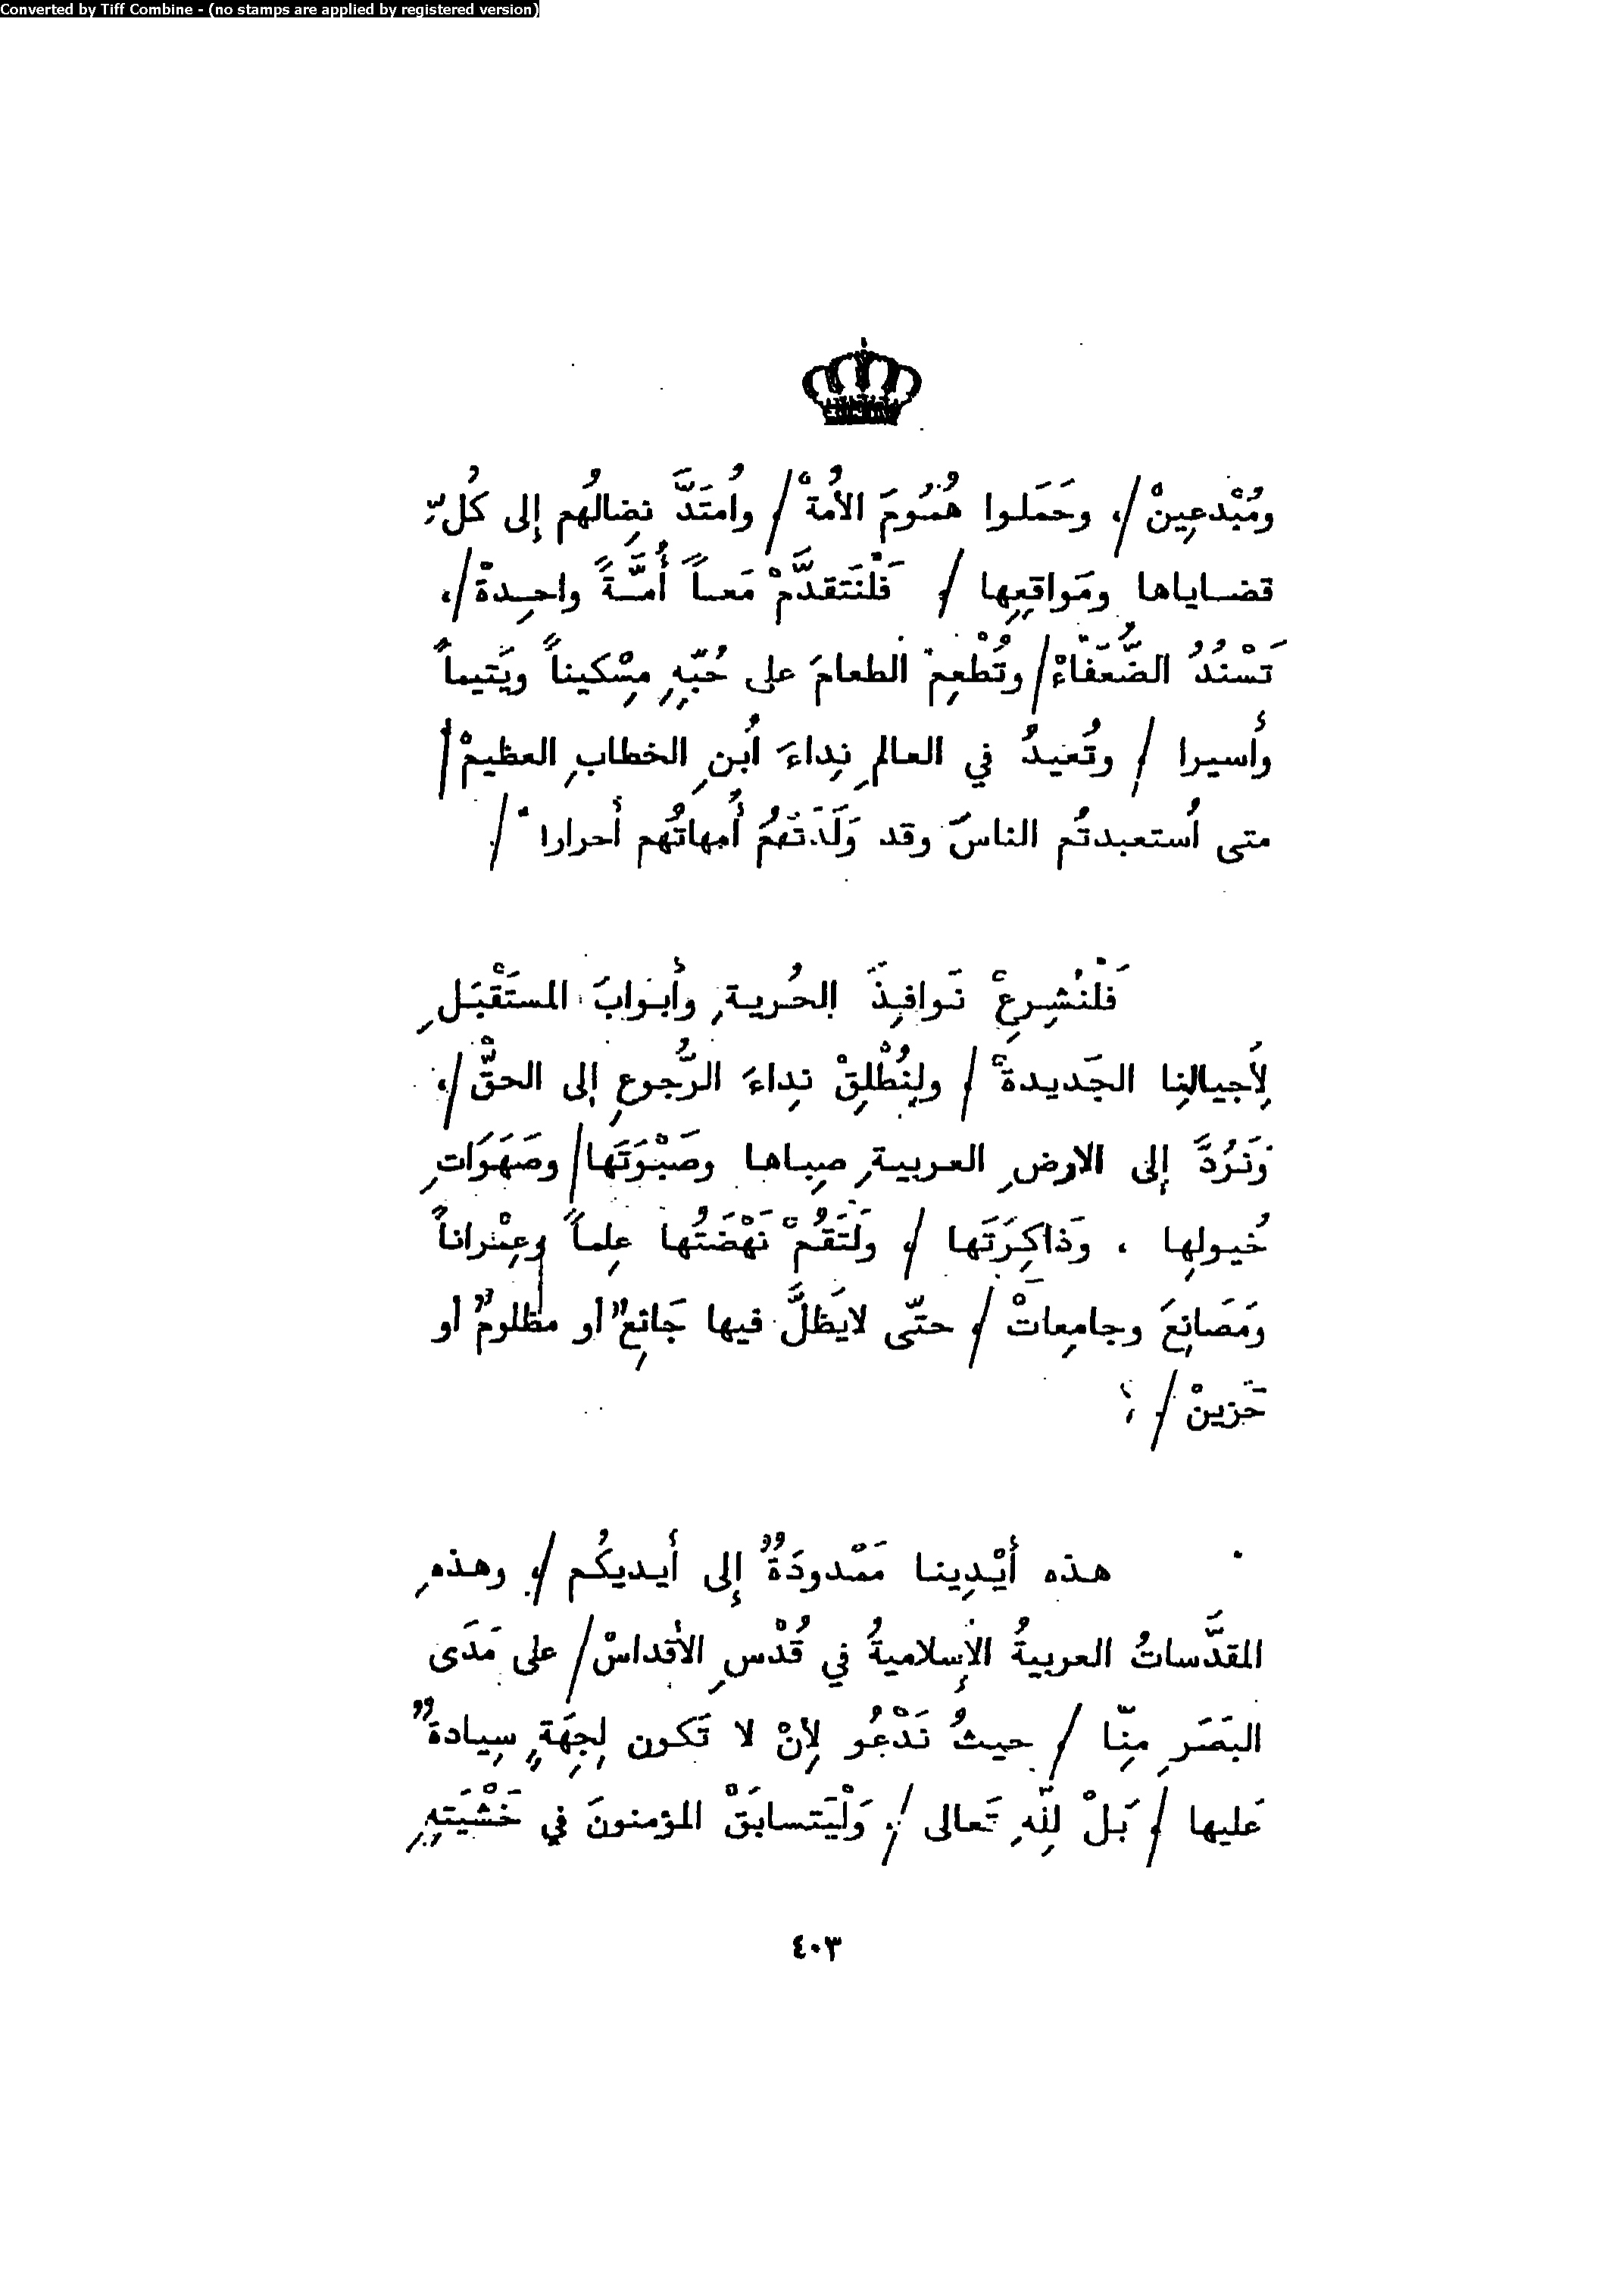 Converted by Tiff Combine - (no stamps are applied by registered version)
ومُبْدعِينْ/، وحَمَلوا هُمُومَ الأُمةْ/ وأمتَدَّ نِضالُهُم إلى كُلِّ
قضاياها ومَواقِعِها /، فَلْنَتَقدَّمْ مَعاً أُمَّةً واحِدةْ/،
تَسْنُدُ الضُّعَفَاءْ/ وتُطْعِمُ الطعامَ على حُبِّهِ مِسْكيناً ويَتيماً
وأسيرا /، وتُعيدُ في العالمِ نِداءَ أبنِ الخطابِ العظيمْ/
متى أستعبدتُم الناسَ وقد وَلَدَتْهُمُ أُمهاتُهُم أحرارا /.
فَلْنُشرِعْ نَوافِذَ الحُريةِ وأبوابَ المستَقْبَلِ
لِأجيالِنا الجَديدةْ /، ولِنُطْلِقْ نِداءَ الرُّجوعِ إلى الحقّْ /،
ونَرُدَّ إلى الارضِ العربيةِ صِباها وصَبْوَتَها/ وصَهَوَاتِ
خُيولِها ، وَذاكِرَتَها /، ولْتَقُمْ نَهْضَتُها عِلماً وعِمْراناً
ومَصَانِعَ وجامِعاتْ /، حتّى لايَظَلَّ فيها جَائعٌ أو مظلومٌ أو
حَزينْ /.
هذه أيْدِينا مَمْدودَةٌ إلى أيديكُم /، وهذهِ
المقدَّساتُ العربيةُ الإسلاميةُ في قُدْسِ الأقداسْ/ على مَدَى
البَصَرِ مِنّا /، حيثُ نَدْعُو لِأنْ لا تَكون لِجِهَةٍ سِيادةٌ
عَليها /، بَلْ لِلّهِ تَعالى /، وَلْيَتسابَقْ المؤمنونَ في خَشْيَتِهِ
٤٠٣